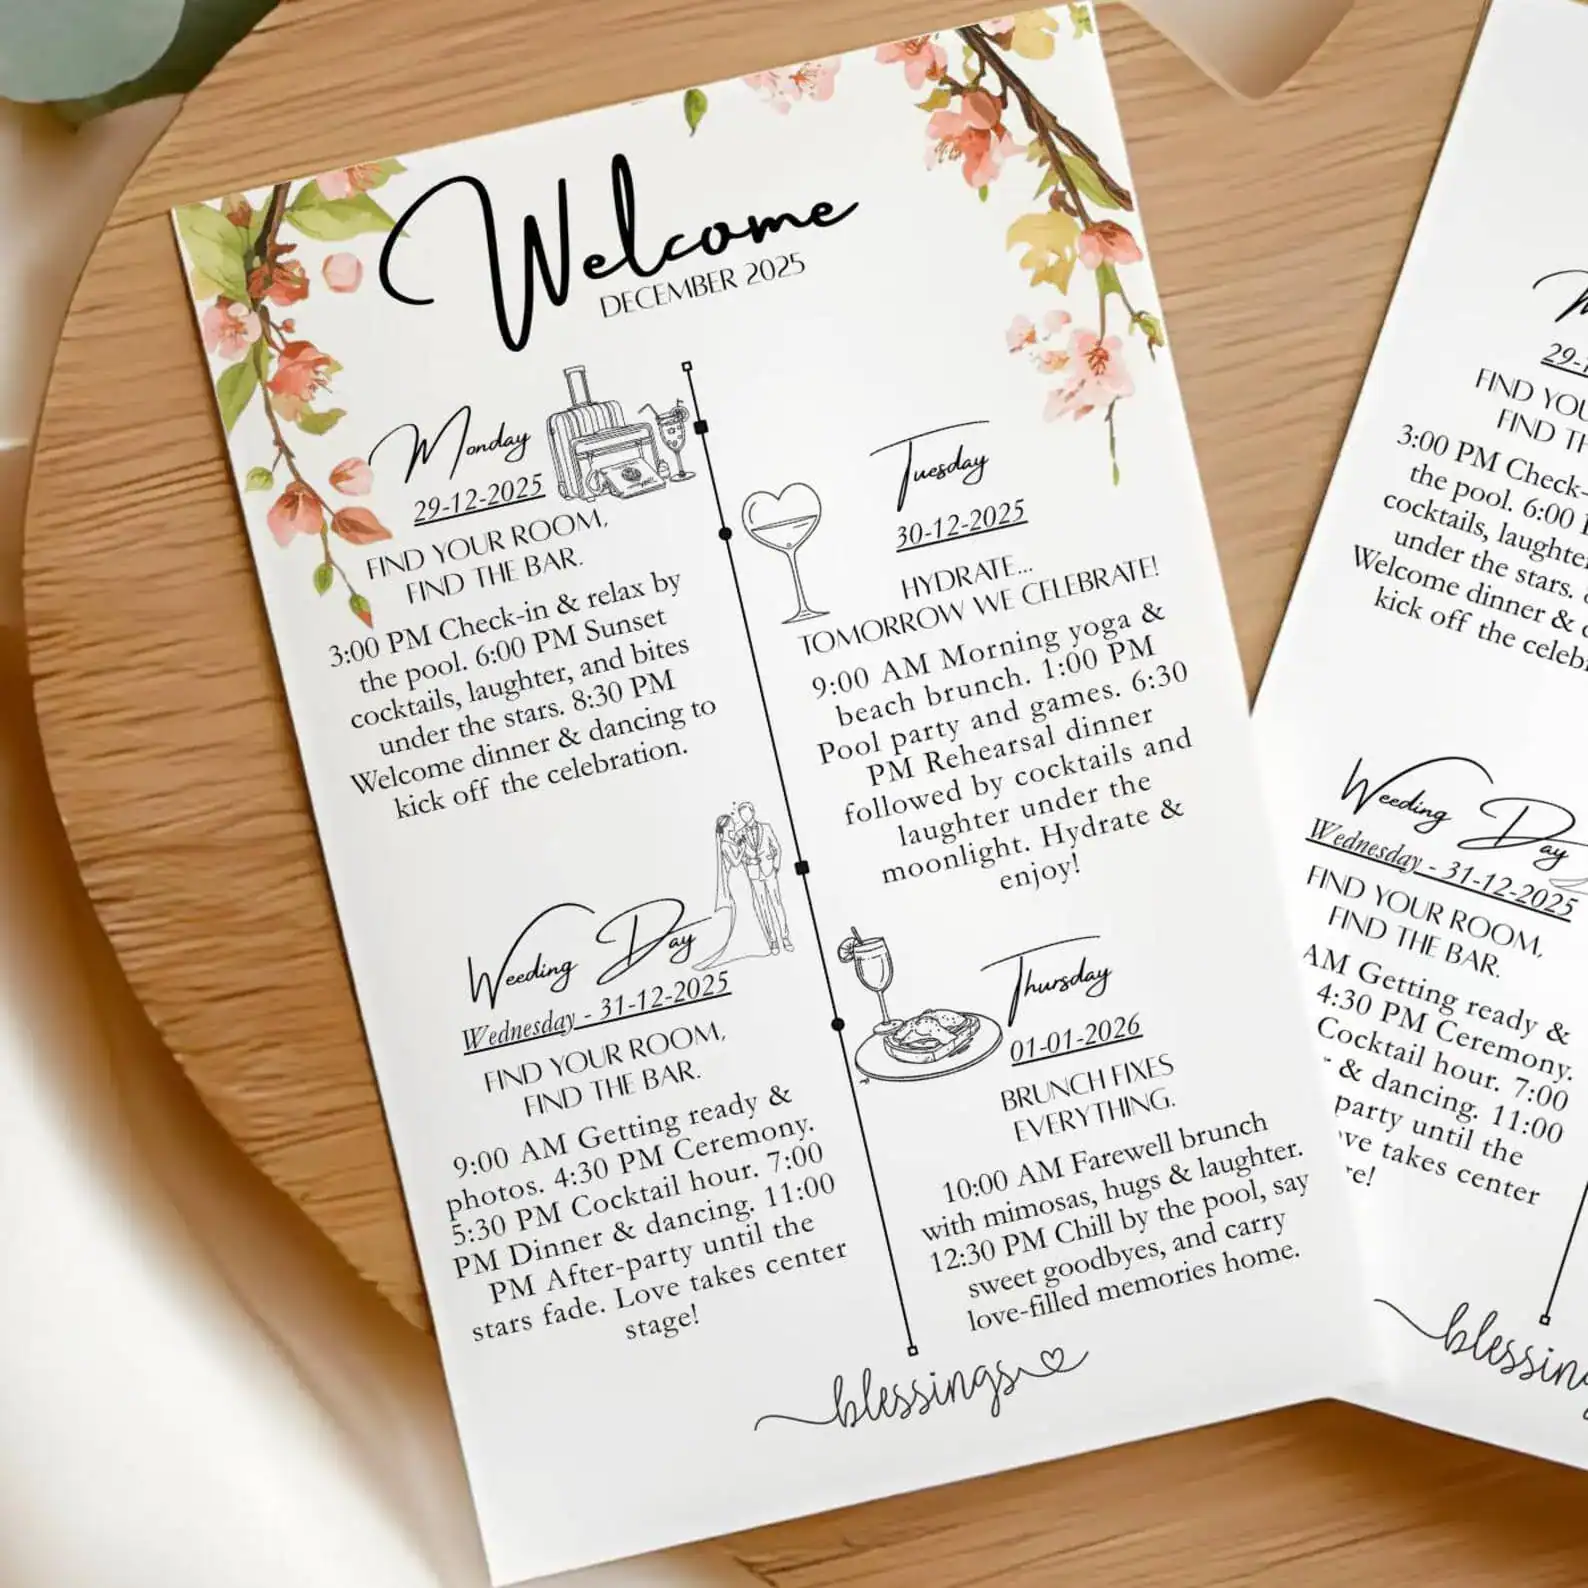 Welcome
DECEMBER 2025
Monday
29-12-2025
FIND YOUR ROOM,
FIND THE BAR.
3:00 PM Check-in & relax by
the pool. 6:00 PM Sunset
cocktails, laughter, and bites
under the stars. 8:30 PM
Welcome dinner & dancing to
kick off the celebration.
Tuesday
30-12-2025
HYDRATE...
TOMORROW WE CELEBRATE!
9:00 AM Morning yoga &
beach brunch. 1:00 PM
Pool party and games. 6:30
PM Rehearsal dinner
followed by cocktails and
laughter under the
moonlight. Hydrate &
enjoy!
Weeding Day
Wednesday - 31-12-2025
FIND YOUR ROOM,
FIND THE BAR.
9:00 AM Getting ready &
photos. 4:30 PM Ceremony.
5:30 PM Cocktail hour. 7:00
PM Dinner & dancing. 11:00
PM After-party until the
stars fade. Love takes center
stage!
Thursday
01-01-2026
BRUNCH FIXES
EVERYTHING.
10:00 AM Farewell brunch
with mimosas, hugs & laughter.
12:30 PM Chill by the pool, say
sweet goodbyes, and carry
love-filled memories home.
blessings
29-1
FIND YOU
FIND TH
3:00 PM Check-
the pool. 6:00
cocktails, laughte
under the stars.
Welcome dinner &
kick off the celeb
Weeding Day
Wednesday - 31-12-2025
FIND YOUR ROOM,
FIND THE BAR.
AM Getting ready &
4:30 PM Ceremony.
Cocktail hour. 7:00
& dancing. 11:00
party until the
ve takes center
e!
blessin